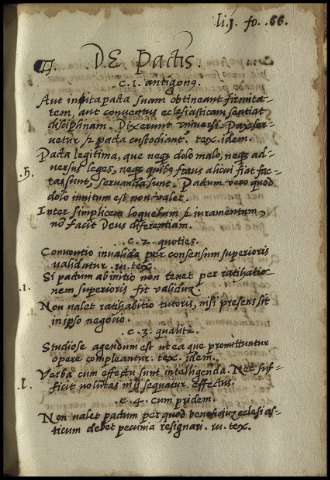 li. 1. fo. 66.
DE Pactis.
c. 1. antigonꝰ.
Aut initita pacta suam obtineant firmita-
tem, aut conventus ecclesiasticam sentiat
disciplinam. Dixerunt universi. Pax ser-
vetur pacta custodiant. tex. idem.
Pacta legitima, que neq dolo malo, neq ad-
versus leges, neq fraus alicui fiat fac-
ta sunt, servanda sunt. Pactum vero quod
dolo initum est non valet.
Inter simplicem loquelam et juramentum,
no facit Deus differentiam.
c. 2. quoties.
Conventio invalida per consensum superioris
validatur. iu. tex.
Si pactum abinitio non tenet per ratihabitio-
nem superioris fit validum.
Non valet ratihabitio tutoris, nisi presens sit
in ipso negocio.
c. 3. qualiter.
Studiose agendum est ut ea que promittuntur
opere compleantur. tex. idem.
Verba cum effectu sunt intelligenda. Nec suf-
ficit voluntas nisi sequatur effectus.
c. 4. cum pridem.
Non valet pactum per quod beneficium ecclesias-
ticum debet pecunia resignari. iu. tex.